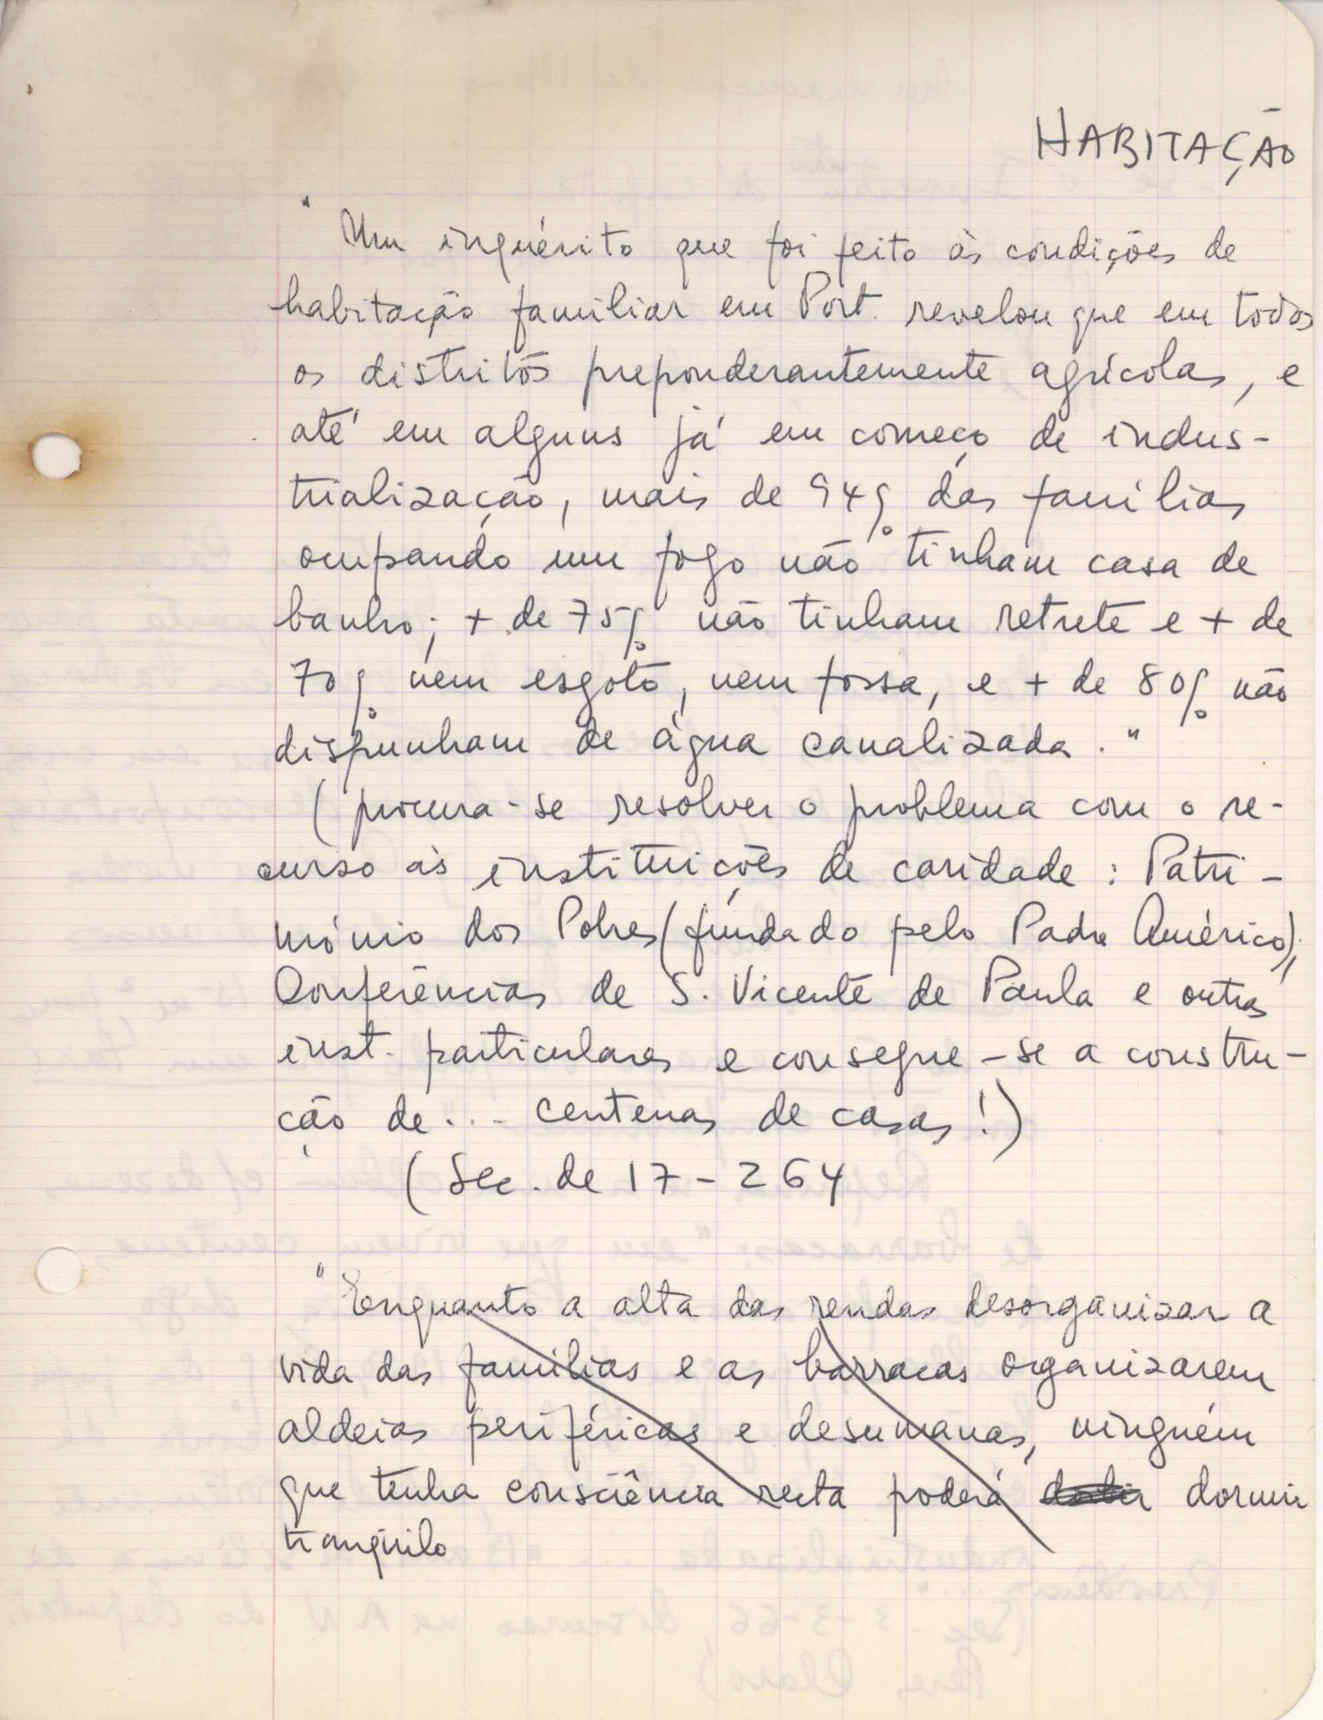 HABITAÇÃO
"Um inquérito que foi feito às condições de
habitação familiar em Port. revelou que em todos
os distritos preponderantemente agrícolas, e
até em alguns já em começo de indus-
trialização, mais de 94% das famílias
ocupando um fogo não tinham casa de
banho; + de 75% não tinham retrete e + de
70% nem esgoto, nem fossa, e + de 80% não
dispunham de água canalizada."
(procura-se resolver o problema com o re-
curso às instituições de caridade: Patri-
mónio dos Pobres (fundado pelo Padre Américo),
Conferências de S. Vicente de Paula e outras
inst. particulares e consegue-se a constru-
ção de... centenas de casas!)
(Sec. de 17-264
"Enquanto a alta das rendas desorganizar a
vida das famílias e as barracas organizarem
aldeias periféricas e desumanas, ninguém
que tenha consciência recta poderá dormir
tranquilo